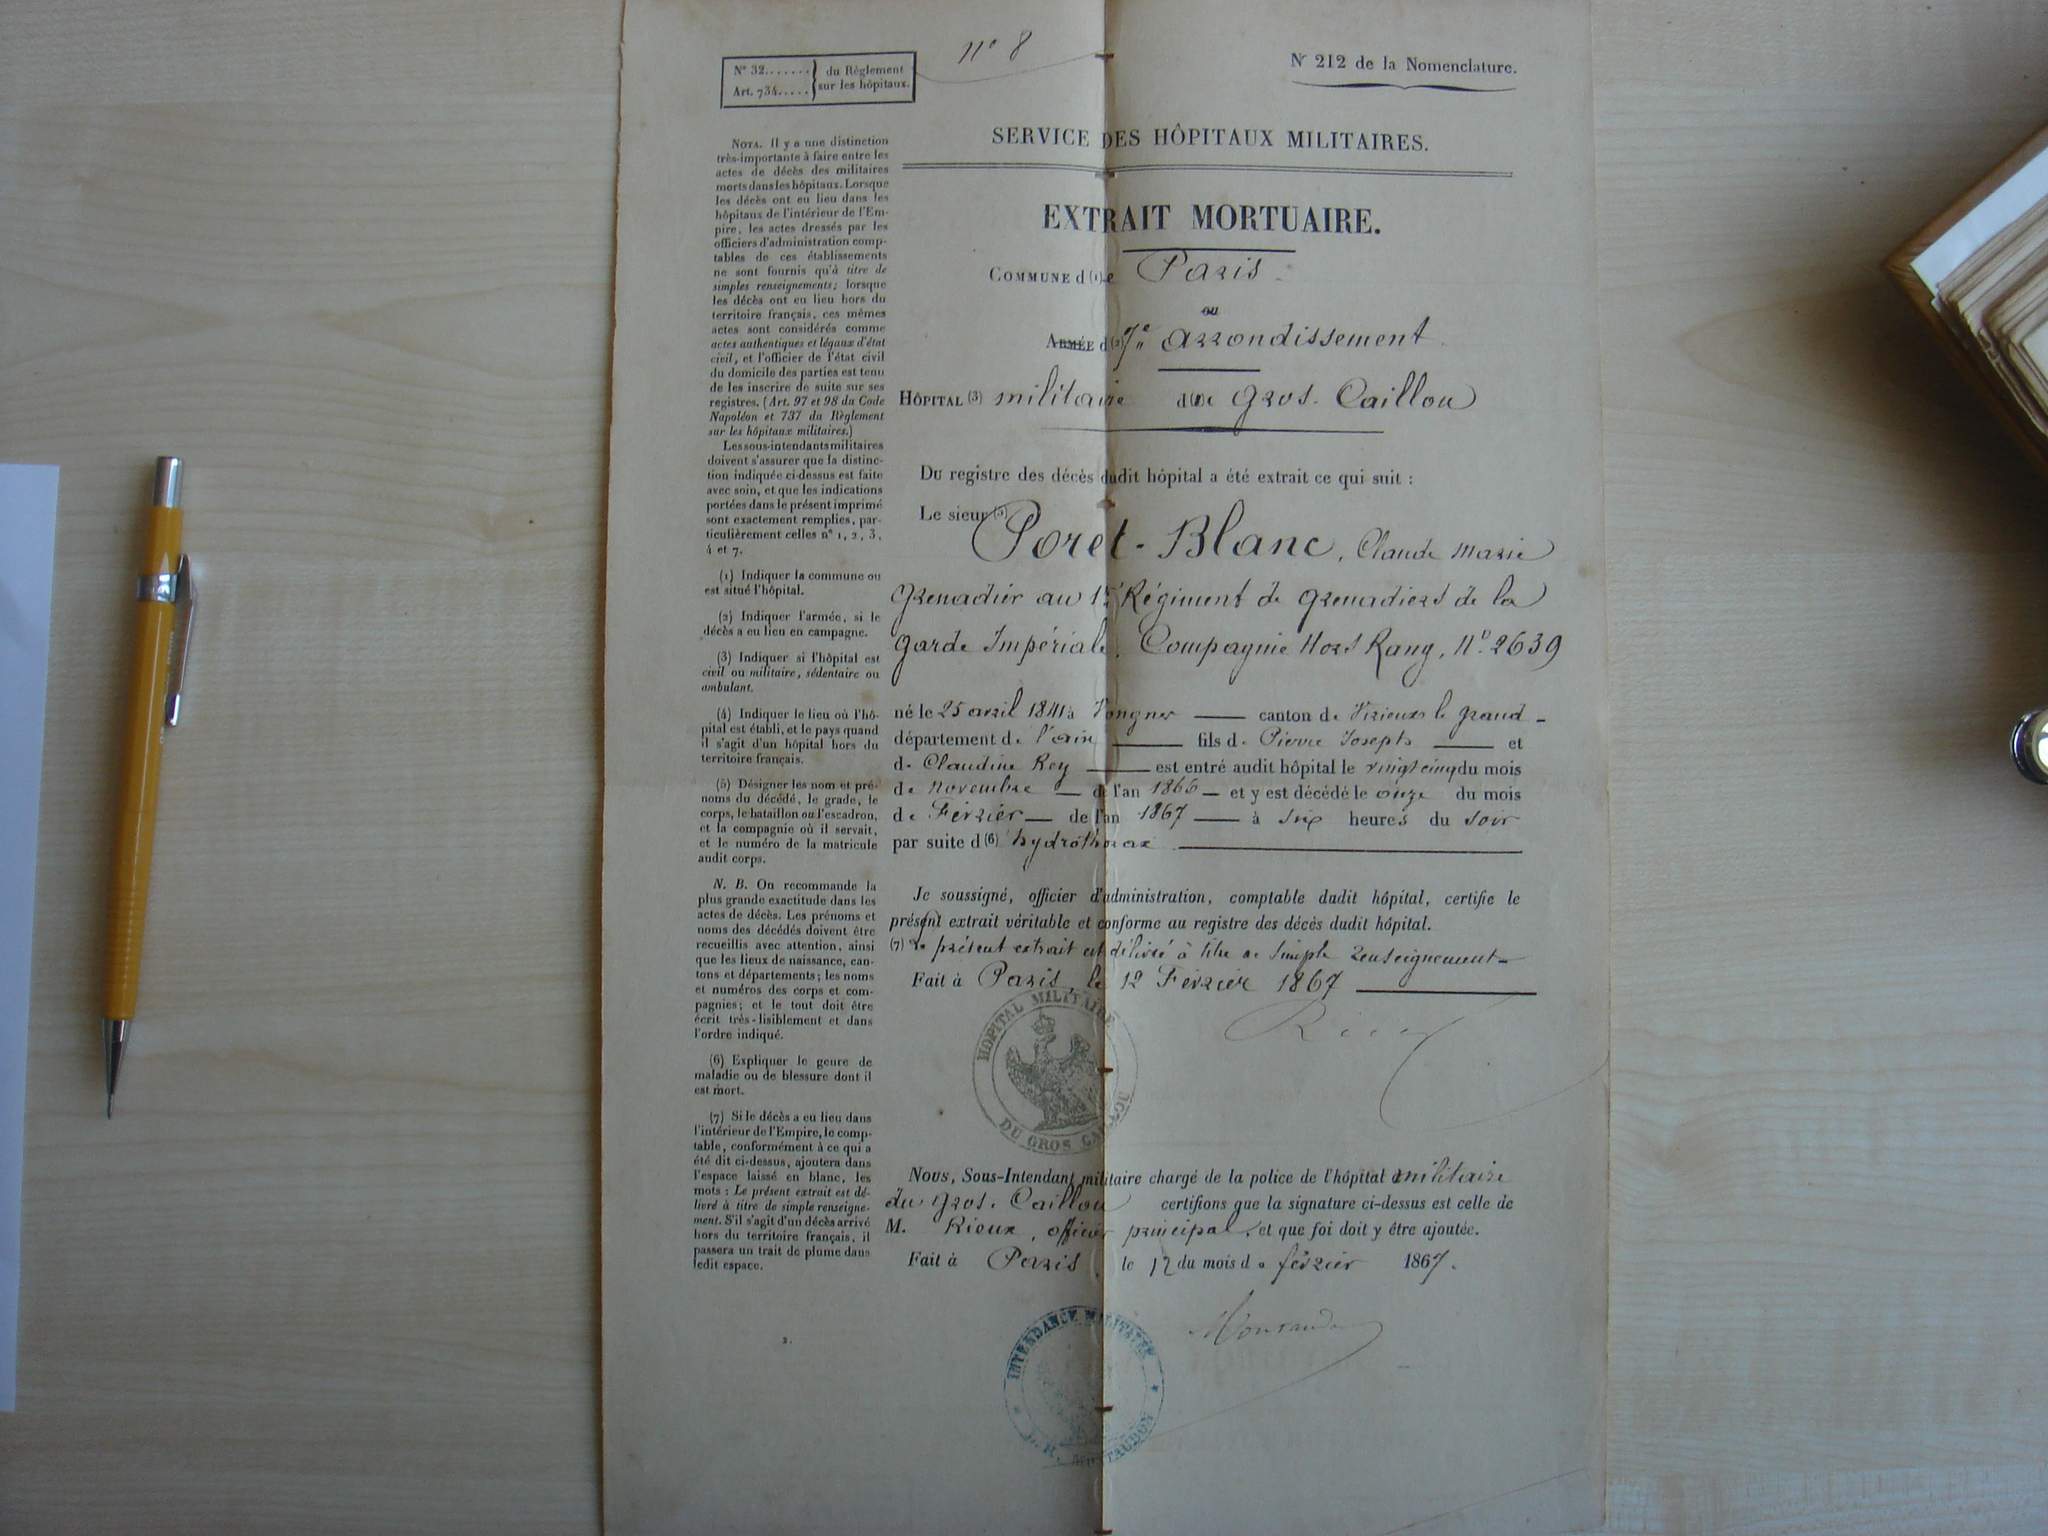 N° 32....... du Règlement
Art. 734..... sur les hôpitaux.
n° 8
N° 212 de la Nomenclature.
SERVICE DES HÔPITAUX MILITAIRES.
EXTRAIT MORTUAIRE.
COMMUNE d (1) e Paris
ou
ARMÉE d (2) 7e arrondissement
HÔPITAL (3) militaire d(4)u Gros-Caillou
Du registre des décès dudit hôpital a été extrait ce qui suit :
Le sieur (5) Poret-Blanc, Claude Marie
Grenadier au 1er Régiment de Grenadiers de la
Garde Impériale, Compagnie Hors Rang, N° 2639
né le 25 avril 1841 à Vongnes canton de Virieux le grand -
département de l'ain fils de Pierre Joseph et
de Claudine Rey est entré audit hôpital le vingt cinq du mois
de novembre de l'an 1866 et y est décédé le onze du mois
de Février de l'an 1867 à six heures du soir
par suite d (6) hydrothorax
Je soussigné, officier d'administration, comptable dudit hôpital, certifie le
présent extrait véritable et conforme au registre des décès dudit hôpital.
(7) Le présent extrait est délivré à titre de simple renseignement
Fait à Paris, le 12 Février 1867
Rieux
HÔPITAL MILITAIRE
DU GROS CAILLOU
Nous, Sous-Intendant militaire chargé de la police de l'hôpital militaire
du Gros-Caillou certifions que la signature ci-dessus est celle de
M. Rieux, officier principal, et que foi doit y être ajoutée.
Fait à Paris, le 12 du mois de février 1867.
INTENDANCE MILITAIRE
NOTA. Il y a une distinction
très-importante à faire entre les
actes de décès des militaires
morts dans les hôpitaux. Lorsque
les décès ont eu lieu dans les
hôpitaux de l'intérieur de l'Em-
pire, les actes dressés par les
officiers d'administration comp-
tables de ces établissements
ne sont fournis qu'à titre de
simples renseignements; lorsque
les décès ont eu lieu hors du
territoire français, ces mêmes
actes sont considérés comme
actes authentiques et légaux d'état
civil, et l'officier de l'état civil
du domicile des parties est tenu
de les inscrire de suite sur ses
registres. (Art. 97 et 98 du Code
Napoléon et 737 du Règlement
sur les hôpitaux militaires.)
Les sous-intendants militaires
doivent s'assurer que la distinc-
tion indiquée ci-dessus est faite
avec soin, et que les indications
portées dans le présent imprimé
sont exactement remplies, par-
ticulièrement celles nos 1, 2, 3,
4 et 7.
(1) Indiquer la commune ou
est situé l'hôpital.
(2) Indiquer l'armée, si le
décès a eu lieu en campagne.
(3) Indiquer si l'hôpital est
civil ou militaire, sédentaire ou
ambulant.
(4) Indiquer le lieu où l'hô-
pital est établi, et le pays quand
il s'agit d'un hôpital hors du
territoire français.
(5) Désigner les nom et pré-
noms du décédé, le grade, le
corps, le bataillon ou l'escadron,
et la compagnie où il servait,
et le numéro de la matricule
audit corps.
N. B. On recommande la
plus grande exactitude dans les
actes de décès. Les prénoms et
noms des décédés doivent être
recueillis avec attention, ainsi
que les lieux de naissance, can-
tons et départements; les noms
et numéros des corps et com-
pagnies; et le tout doit être
écrit très-lisiblement et dans
l'ordre indiqué.
(6) Expliquer le genre de
maladie ou de blessure dont il
est mort.
(7) Si le décès a eu lieu dans
l'intérieur de l'Empire, le comp-
table, conformément à ce qui a
été dit ci-dessus, ajoutera dans
l'espace laissé en blanc, les
mots : Le présent extrait est dé-
livré à titre de simple renseigne-
ment. S'il s'agit d'un décès arrivé
hors du territoire français, il
passera un trait de plume dans
ledit espace.
2.